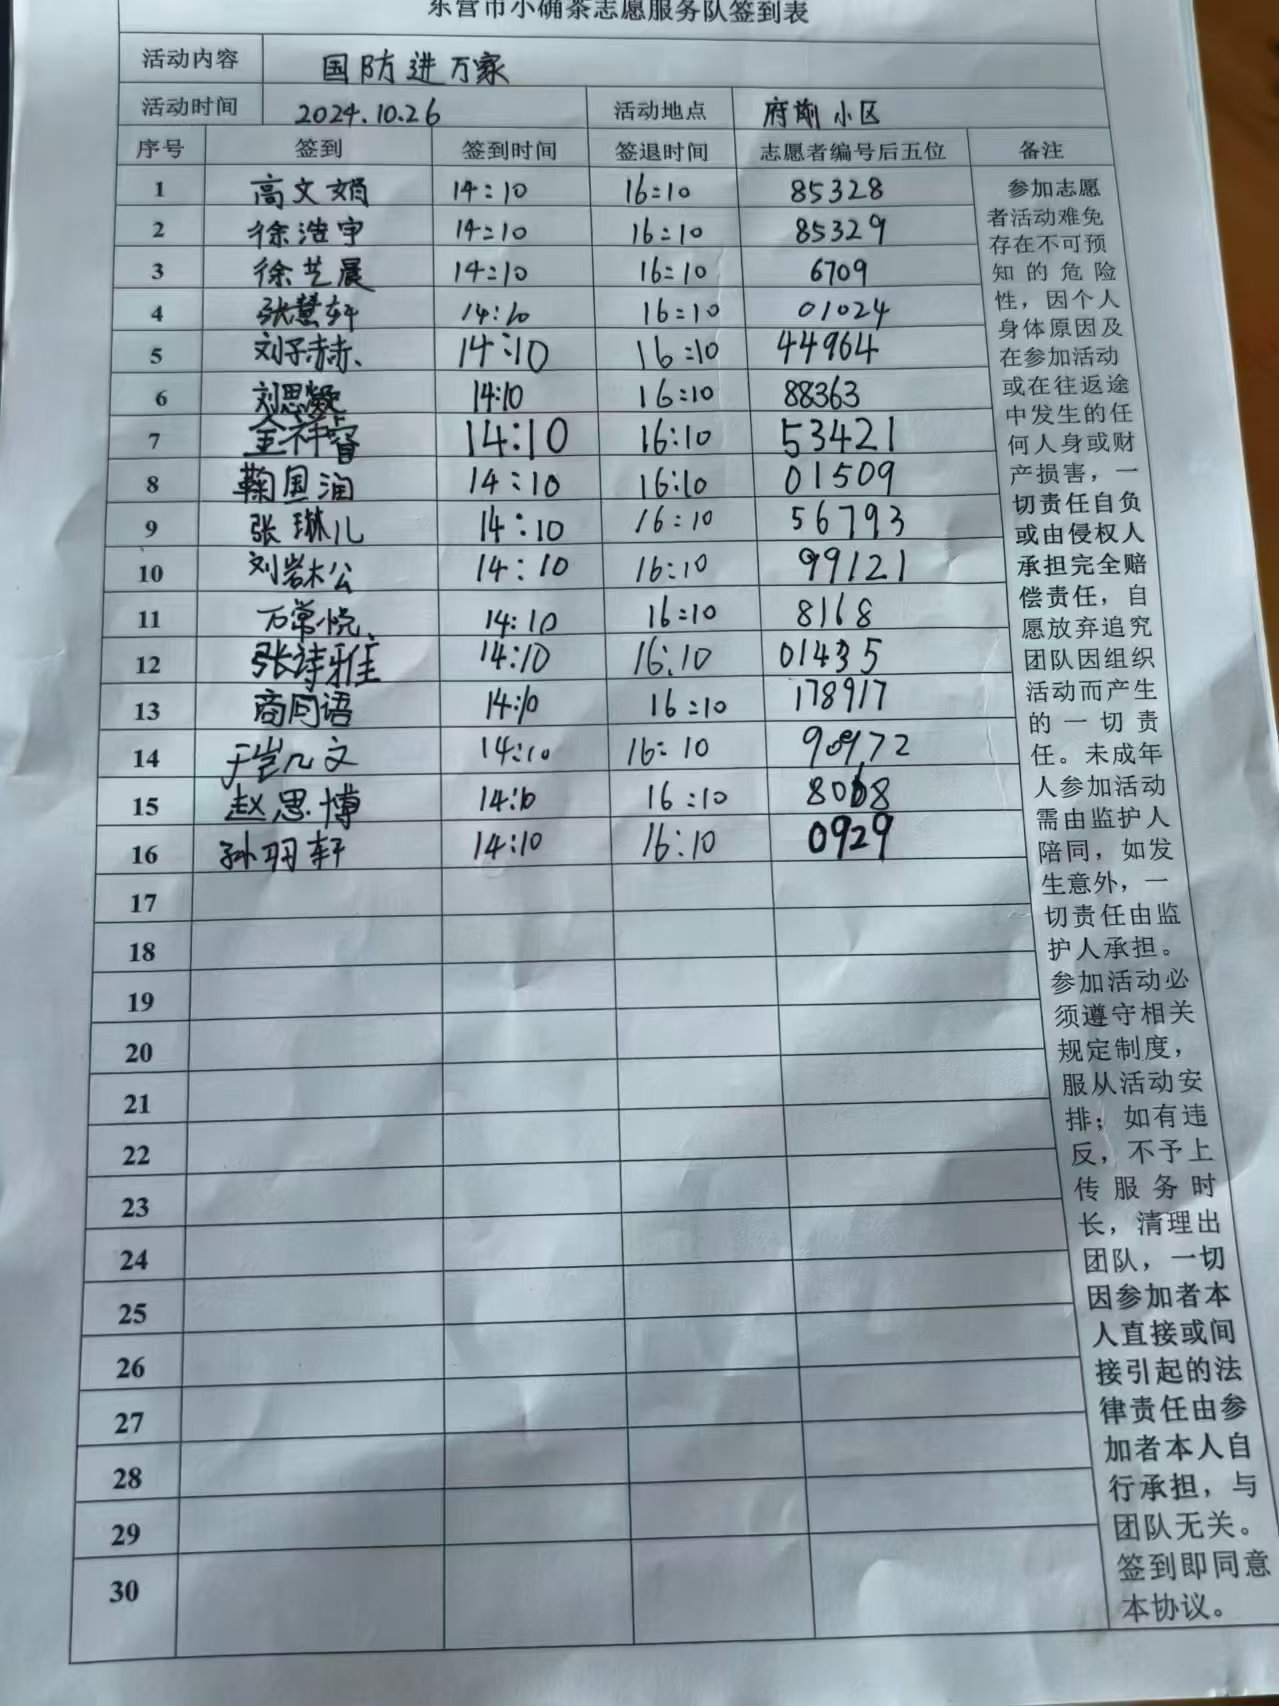 东营市小确茶志愿服务队签到表
活动内容 国防进万家
活动时间 2024.10.26 活动地点 府前小区
序号 签到 签到时间 签退时间 志愿者编号后五位 备注
1 高文娟 14:10 16:10 85328
2 徐浩宇 14:10 16:10 85329
3 徐艺晨 14:10 16:10 6709
4 张慧轩 14:10 16:10 01024
5 刘子赫 14:10 16:10 44964
6 刘思凝 14:10 16:10 88363
7 14:10 16:10 53421
8 鞠国润 14:10 16:10 01509
9 张琳儿 14:10 16:10 56793
10 刘岩松 14:10 16:10 99121
11 万常悦 14:10 16:10 8168
12 张诗雅 14:10 16:10 01435
13 商同语 14:10 16:10 178917
14 14:10 16:10
15 赵思博 14:10 16:10 8068
16 孙羽轩 14:10 16:10 0929
17
18
19
20
21
22
23
24
25
26
27
28
29
30
参加志愿
者活动难免
存在不可预
知的危险
性，因个人
身体原因及
在参加活动
或在往返途
中发生的任
何人身或财
产损害，一
切责任自负
或由侵权人
承担完全赔
偿责任，自
愿放弃追究
团队因组织
活动而产生
的一切责
任。未成年
人参加活动
需由监护人
陪同，如发
生意外，一
切责任由监
护人承担。
参加活动必
须遵守相关
规定制度，
服从活动安
排；如有违
反，不予上
传服务时
长，清理出
团队，一切
因参加者本
人直接或间
接引起的法
律责任由参
加者本人自
行承担，与
团队无关。
签到即同意
本协议。